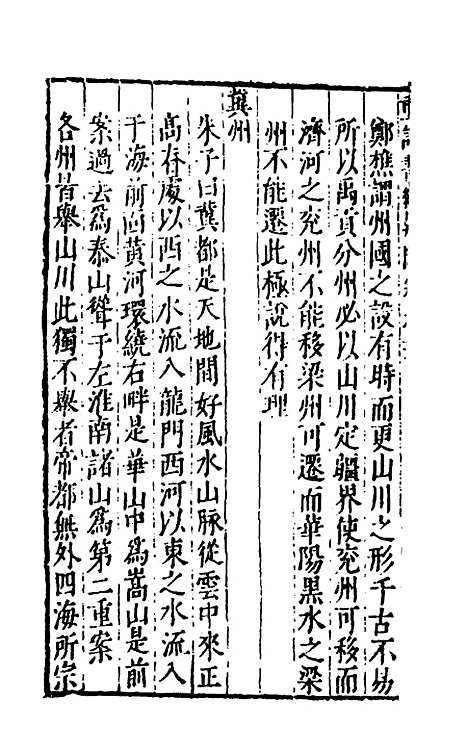 鄭樵謂州國之設有時而更山川之形千古不易
所以禹貢分州必以山川定疆界使兗州可移而
濟河之兗州不能移梁州可遷而華陽黑水之梁
州不能遷此極說得有理
冀州
朱子曰冀都是天地間好風水山脉從雲中來正
高脊處以西之水流入龍門西河以東之水流入
于海前面黃河環繞右畔是華山中為嵩山是前
案過去為泰山聳于左淮南諸山為第二重案
各州皆舉山川此獨不舉者帝都無外四海所宗